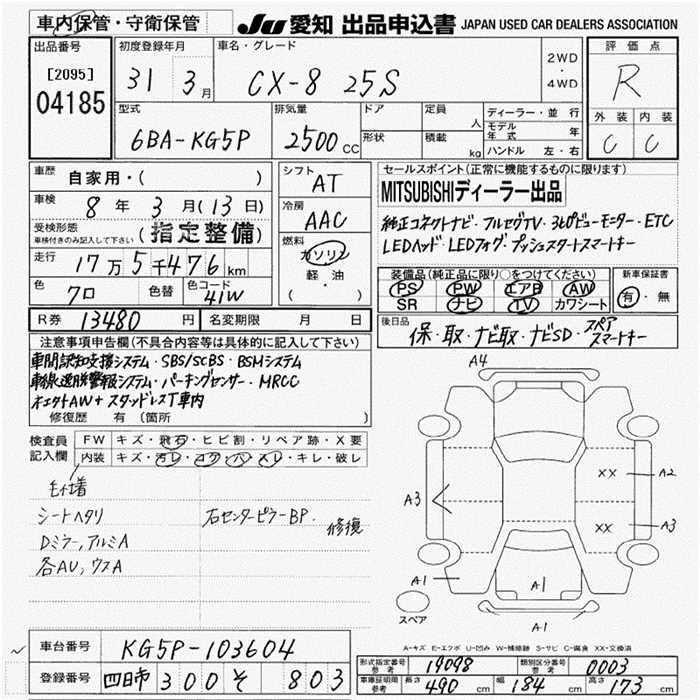 車内保管・守衛保管
JU 愛知 出品申込書 JAPAN USED CAR DEALERS ASSOCIATION
出品番号
[2095]
04185
初度登録年月
31 3月
車名・グレード
CX-8 25S
2WD
・
4WD
評価点
R
外装 内装
C C
型式
6BA-KG5P
排気量
2500 CC
ドア
形状
定員 人
積載 kg
ディーラー・並行
モデル年式 年
ハンドル 左・右
車歴 自家用・( )
車検 8年 3月(13日)
受検形態 (指定整備)
車検付きのみ記入して下さい
走行 17万5千476km
色 クロ 色替 色コード 41W
シフト AT
冷房 AAC
燃料 ガソリン
軽・油
( )
R券 13480円 名変期限 月 日
セールスポイント(正常に機能するものに限ります)
MITSUBISHIディーラー出品
純正コネクトナビ・フルセグTV・360ビューモニター・ETC
LEDヘッド・LEDフォグ・プッシュスタートスマートキー
装備品(純正品に限り○をつけてください)
PS PW エアB AW
SR ナビ TV カワシート
新車保証書
有・無
後日品
保・取・ナビ取・ナビSD・スペアスマートキー
注意事項申告欄(不具合内容等は具体的に記入して下さい)
車間認知支援システム・SBS/SCBS・BSMシステム
車線逸脱警報システム・パーキングセンサー・MRCC
ホコウトAW+スタッドレスT車内
修復歴 有(箇所 )
検査員記入欄
FW キズ・飛石・ヒビ割・リペア跡・X要
内装 キズ・汚レ・コゲ・穴・スレ・キレ・破レ
シートヘタリ
Dミラー,アルミA
各AU,ウスA
右センターピラーBP. 修復
A4
A3
XX A2
XX A3
A1
A1
A1
スペア
A-キズ E-エクボ U-凹み W-補修跡 S-サビ C-腐食 XX-交換済
車台番号 KG5P-103604
登録番号 四日市 300 そ 803
形式指定番号 参考 19098
類別区分番号 参考 0003
車庫証明用 参考 長さ 490cm 幅 184cm 高さ 173cm